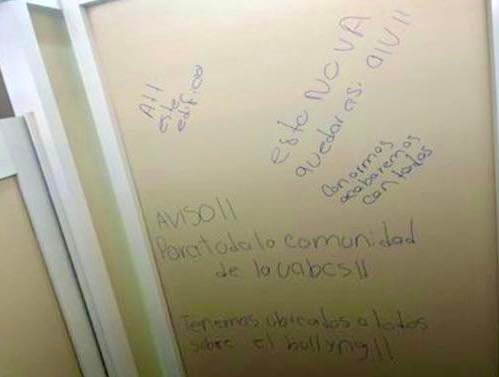 A11
este
edificio
esto NO VA
quedar asi
con armas
acabaremos
con todos
AVISO!!
Para toda la comunidad
de la uabcs!!
Tenemos ubicados a todos
sobre el bullyng!!